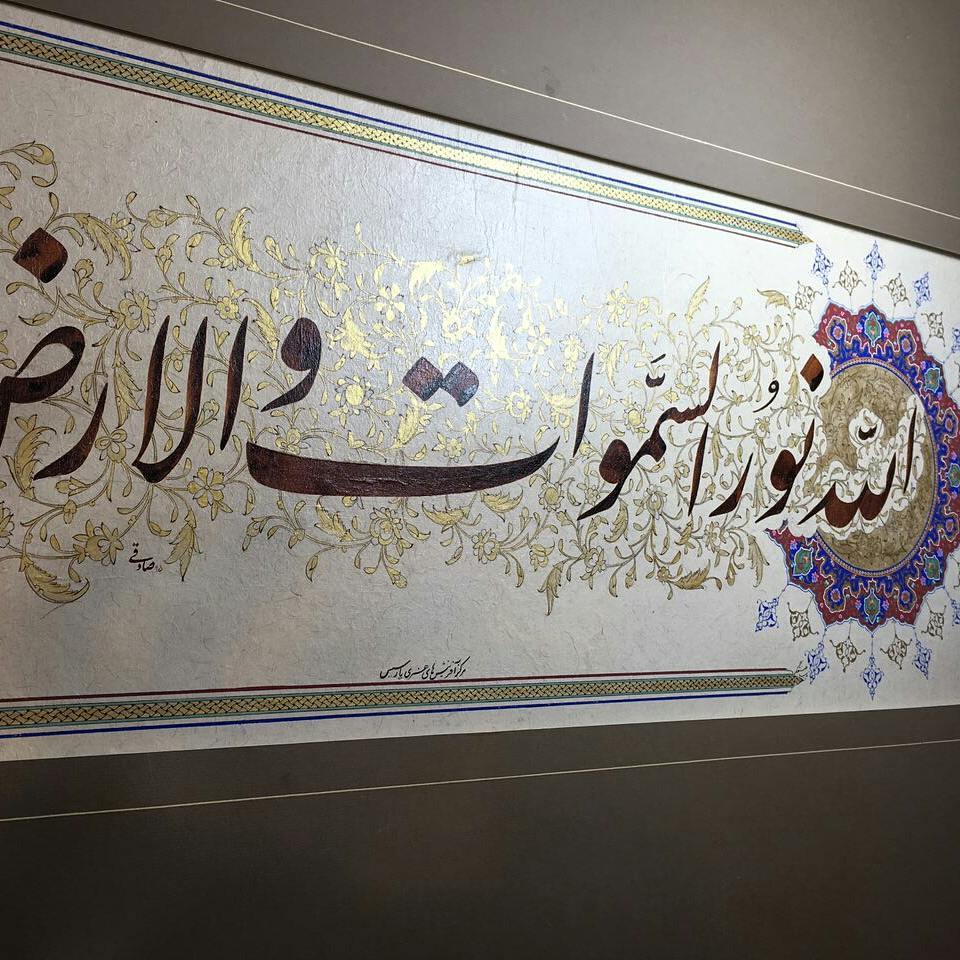 الله نور السّموات والارض
صادقی ۸۵
مرکز آفرینش‌های هنری پارسیس